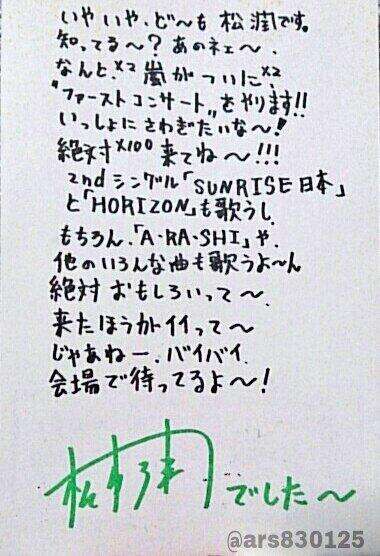 いやいや、ど〜も 松潤です。
知ってる〜? あのネェ〜、
なんと、×2 嵐がついに×2、
"ファーストコンサート"をやります!!
いっしょにさわぎたいな〜!
絶対×100 来てね〜!!!
2ndシングル「SUNRISE日本」
と「HORIZON」も歌うし、
もちろん、「A・RA・SHI」や、
他のいろんな曲も歌うよ〜ん
絶対 おもしろいって〜、
来たほうがイイって〜
じゃあねー、バイバイ、
会場で待ってるよ〜!
松本潤 でした〜
@ars830125